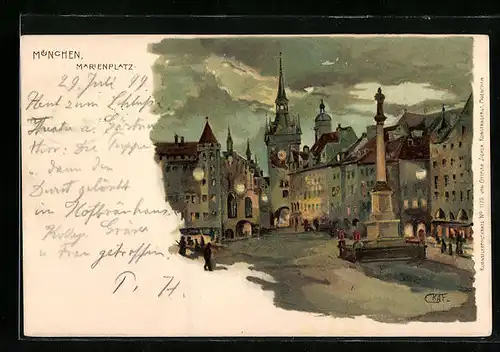 MÜNCHEN,
MARIENPLATZ.
29 Juli 99
Heut zum Schluß
Theater a. Gärtner
Thor: Die Puppe
dann den
Durst gelöscht
im Hofbräuhaus.
Kollege
u Frau getroffen.
T. H.
KÜNSTLERPOSTKARTE No 1120 VON OTTMAR ZIEHER, KUNSTVERLAG, MÜNCHEN